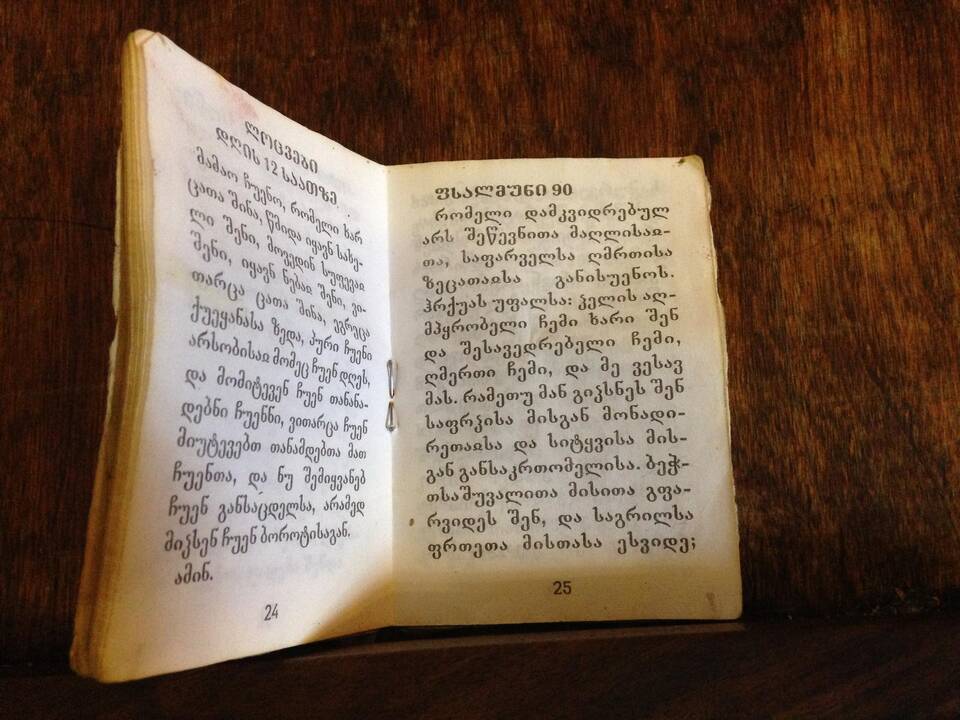 ლოცვები
დღის 12 საათზე
მამაო ჩუენო, რომელი ხარ
ცათა შინა, წმიდა იყავნ სახე-
ლი შენი, მოვედინ სუფევაჲ
შენი, იყავნ ნებაჲ შენი, ვი-
თარცა ცათა შინა, ეგრეცა
ქუეყანასა ზედა, პური ჩუენი
არსობისაჲ მომეც ჩუენ დღეს,
და მომიტევენ ჩუენ თანანა-
დებნი ჩუენნი, ვითარცა ჩუენ
მიუტევებთ თანამდებთა მათ
ჩუენთა, და ნუ შემიყვანებ
ჩუენ განსაცდელსა, არამედ
მიჴსენ ჩუენ ბოროტისაგან.
ამინ.
24
ფსალმუნი 90
რომელი დამკვიდრებულ
არს შეწევნითა მაღლისაჲ-
თა, საფარველსა ღმრთისა
ზეცათაჲსა განისუენოს.
ჰრქუას უფალსა: ჴელის აღ-
მპყრობელი ჩემი ხარი შენ
და შესავედრებელი ჩემი,
ღმერთი ჩემი, და მე ვესავ
მას. რამეთუ მან გიჴსნეს შენ
საფრჴისა მისგან მონადი-
რეთაჲსა და სიტყვისა მის-
გან განსაკრთომელისა. ბეჭ-
თსაშუვალითა მისითა გფა-
რვიდეს შენ, და საგრილსა
ფრთეთა მისთასა ესვიდე;
25